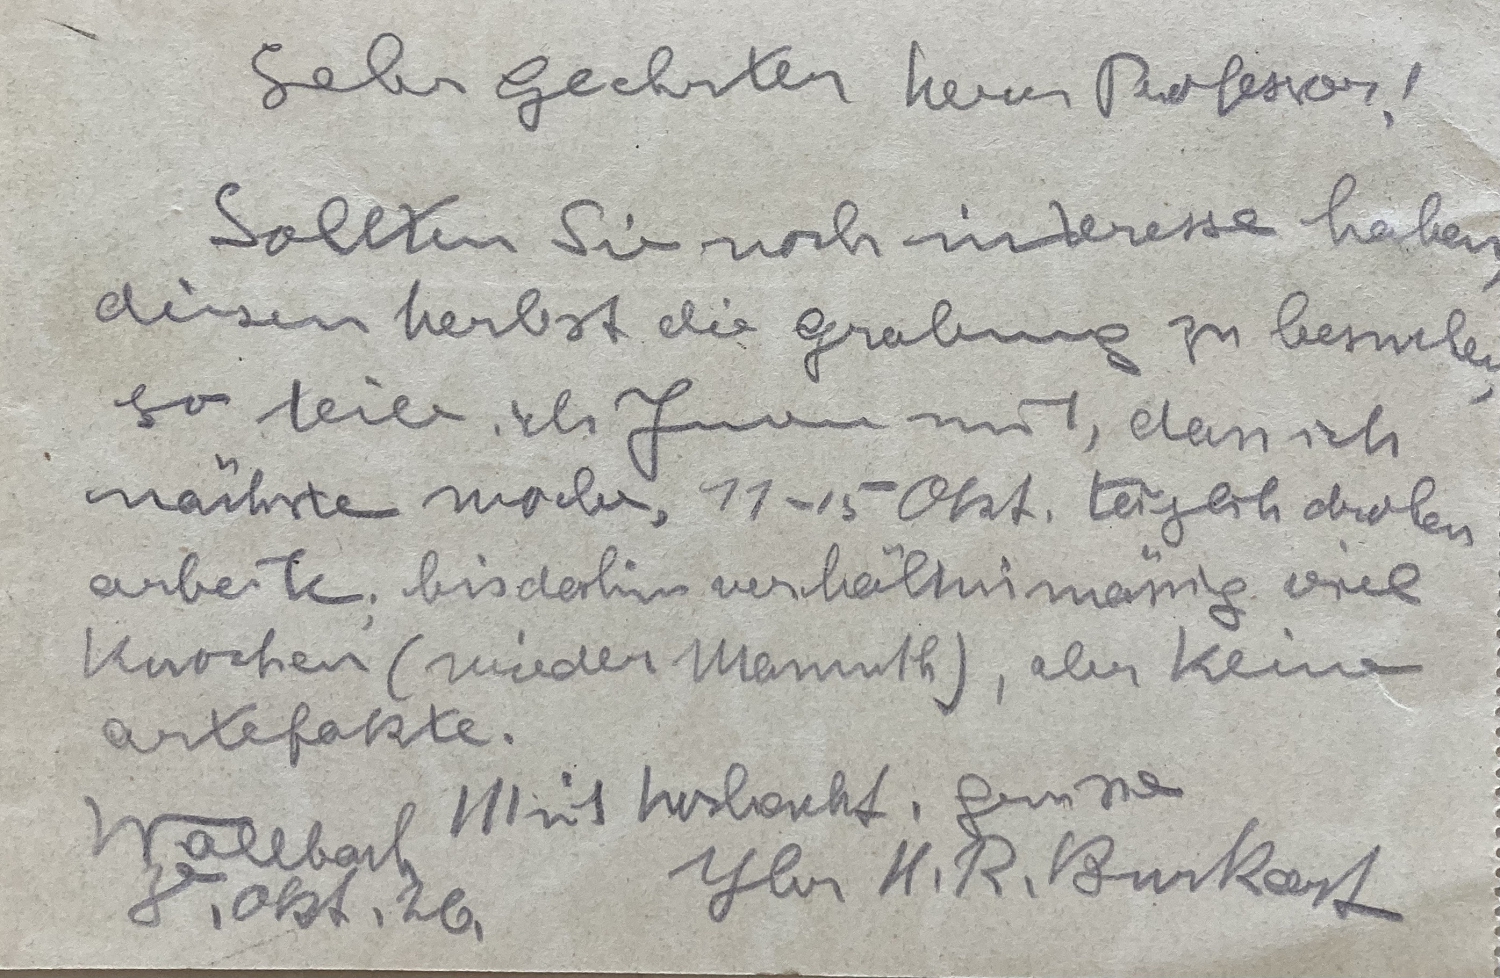 Sehr geehrter herr Professor!
Sollten Sie noch interesse haben,
diesen herbst die grabung zu besuchen,
so teile ich Ihnen mit, dass ich
nächste woche, 11-15 Okt. täglich droben
arbeite; bisdahin verhältnismässig viel
Knochen (wieder Mamuth), aber keine
artefakte.
Mit hochacht. grüsse
Wallbach Ihr H. R. Burkart
8. okt. 26.